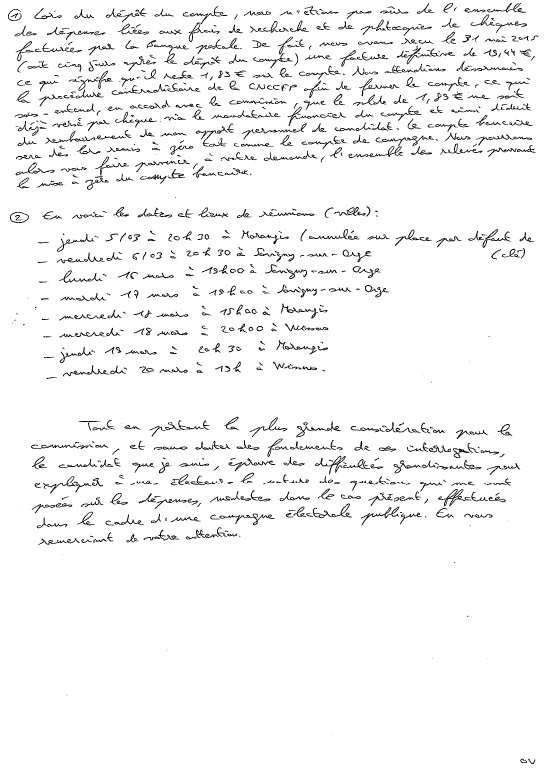 ① Lors du dépôt du compte, nous n'étions pas sûrs de l'ensemble
des dépenses liées aux frais de recherche et de photocopies de chèques
facturées par la Banque postale. De fait, nous avons reçu le 31 mai 2015
(soit cinq jours après le dépôt du compte) une facture définitive de 19,44 €,
ce qui signifie qu'il reste 1,83 € sur le compte. Nous attendions désormais
la procédure contradictoire de la CNCCFP afin de fermer le compte, ce qui
sous-entend, en accord avec la commission, que le solde de 1,83 € me soit
déjà versé par chèque via le mandataire financier du compte et ainsi déduit
du remboursement de mon apport personnel de candidat. Le compte bancaire
sera dès lors remis à zéro tout comme le compte de campagne. Nous pourrons
alors vous faire parvenir, à votre demande, l'ensemble des relevés prouvant
la mise à zéro du compte bancaire.
② En voici les dates et lieux de réunions (villes) :
– jeudi 5/03 à 20h30 à Morangis (annulée sur place par défaut de
– vendredi 6/03 à 20h30 à Savigny-sur-Orge (clé)
– lundi 16 mars à 19h00 à Savigny-sur-Orge
– mardi 17 mars à 19h00 à Savigny-sur-Orge
– mercredi 18 mars à 15h00 à Morangis
– mercredi 18 mars à 20h00 à Wissous
– jeudi 19 mars à 20h30 à Morangis
– vendredi 20 mars à 19h à Wissous.
Tout en portant la plus grande considération pour la
commission, et sans douter des fondements de ses interrogations,
le candidat que je suis, éprouve des difficultés grandissantes pour
expliquer à mes électeurs la nature des question qui me sont
posées sur les dépenses, modestes dans le cas présent, effectuées
dans le cadre d'une campagne électorale publique. En vous
remerciant de votre attention.